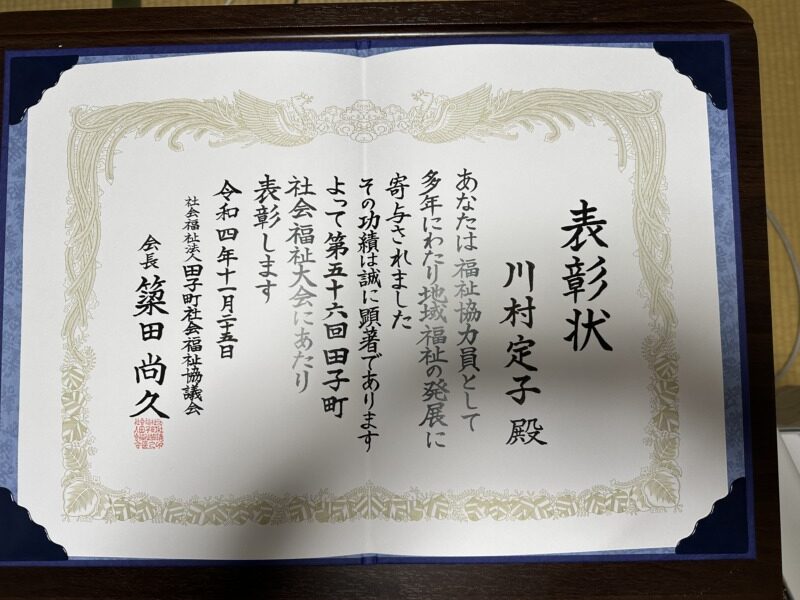 表彰状
川村定子 殿
あなたは福祉協力員として
多年にわたり地域福祉の発展に
寄与されました
その功績は誠に顕著であります
よって第五十六回田子町
社会福祉大会にあたり
表彰します
令和四年十一月二十五日
社会福祉法人田子町社会福祉協議会
会長 築田尚久